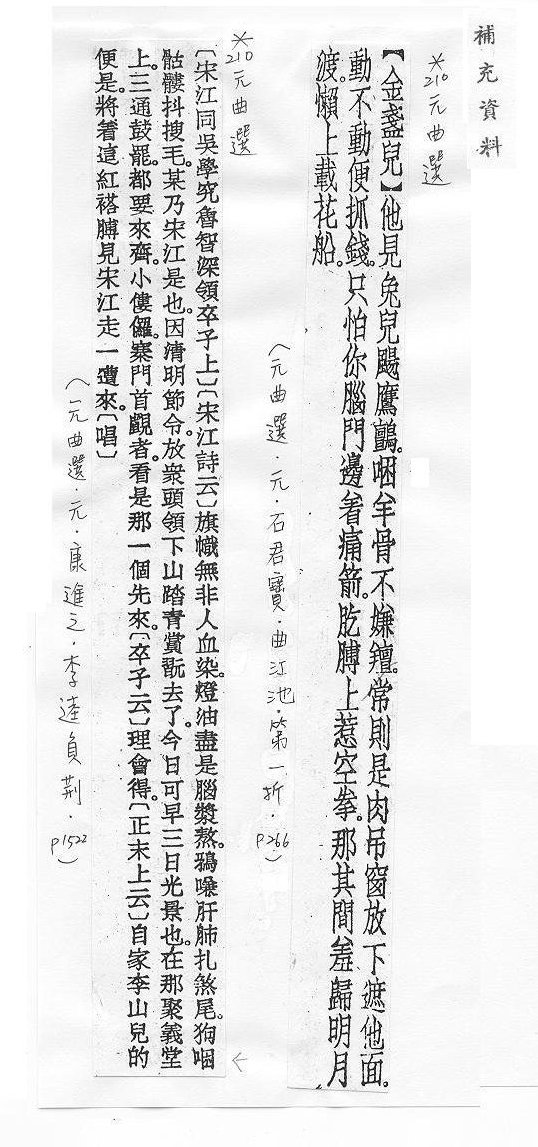 補充資料
※210元曲選
【金盞兒】他見兔兒颺鷹鸇。咽羊骨不嫌羶。常則是肉吊窗放下遮他面。
動不動便抓錢。只怕你腦門邊着痛箭。肐膊上惹空拳。那其間羞歸明月
渡。懶上載花船。
(元曲選·元·石君寶·曲江池·第一折·p266)
※210元曲選
〔宋江同吳學究魯智深領卒子上〕〔宋江詩云〕旗幟無非人血染。燈油盡是腦漿熬。鴉嗛肝肺扎煞尾。狗咽
骷髏抖搜毛。某乃宋江是也。因清明節令。放衆頭領下山踏青賞翫去了。今日可早三日光景也。在那聚義堂
上。三通鼓罷。都要來齊。小僂儸寨門首覷者。看是那一個先來。〔卒子云〕理會得。〔正末上云〕自家李山兒的
便是。將着這紅褡膊見宋江走一遭來。〔唱〕
(元曲選·元·康進之·李逵負荊·p1522)